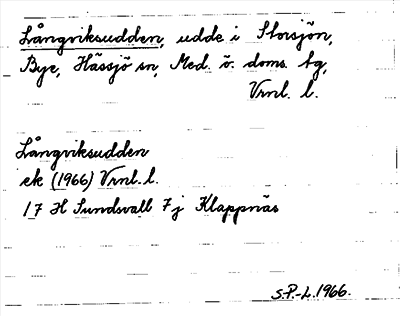 Långviksudden, udde i Storsjön,
Bye, Hässjö sn, Med. ö. doms. tg,
Vrnl. l.
Långviksudden
ek (1966) Vrnl. l.
17 H Sundsvall 7j Klappnäs
S.P.-L. 1966.